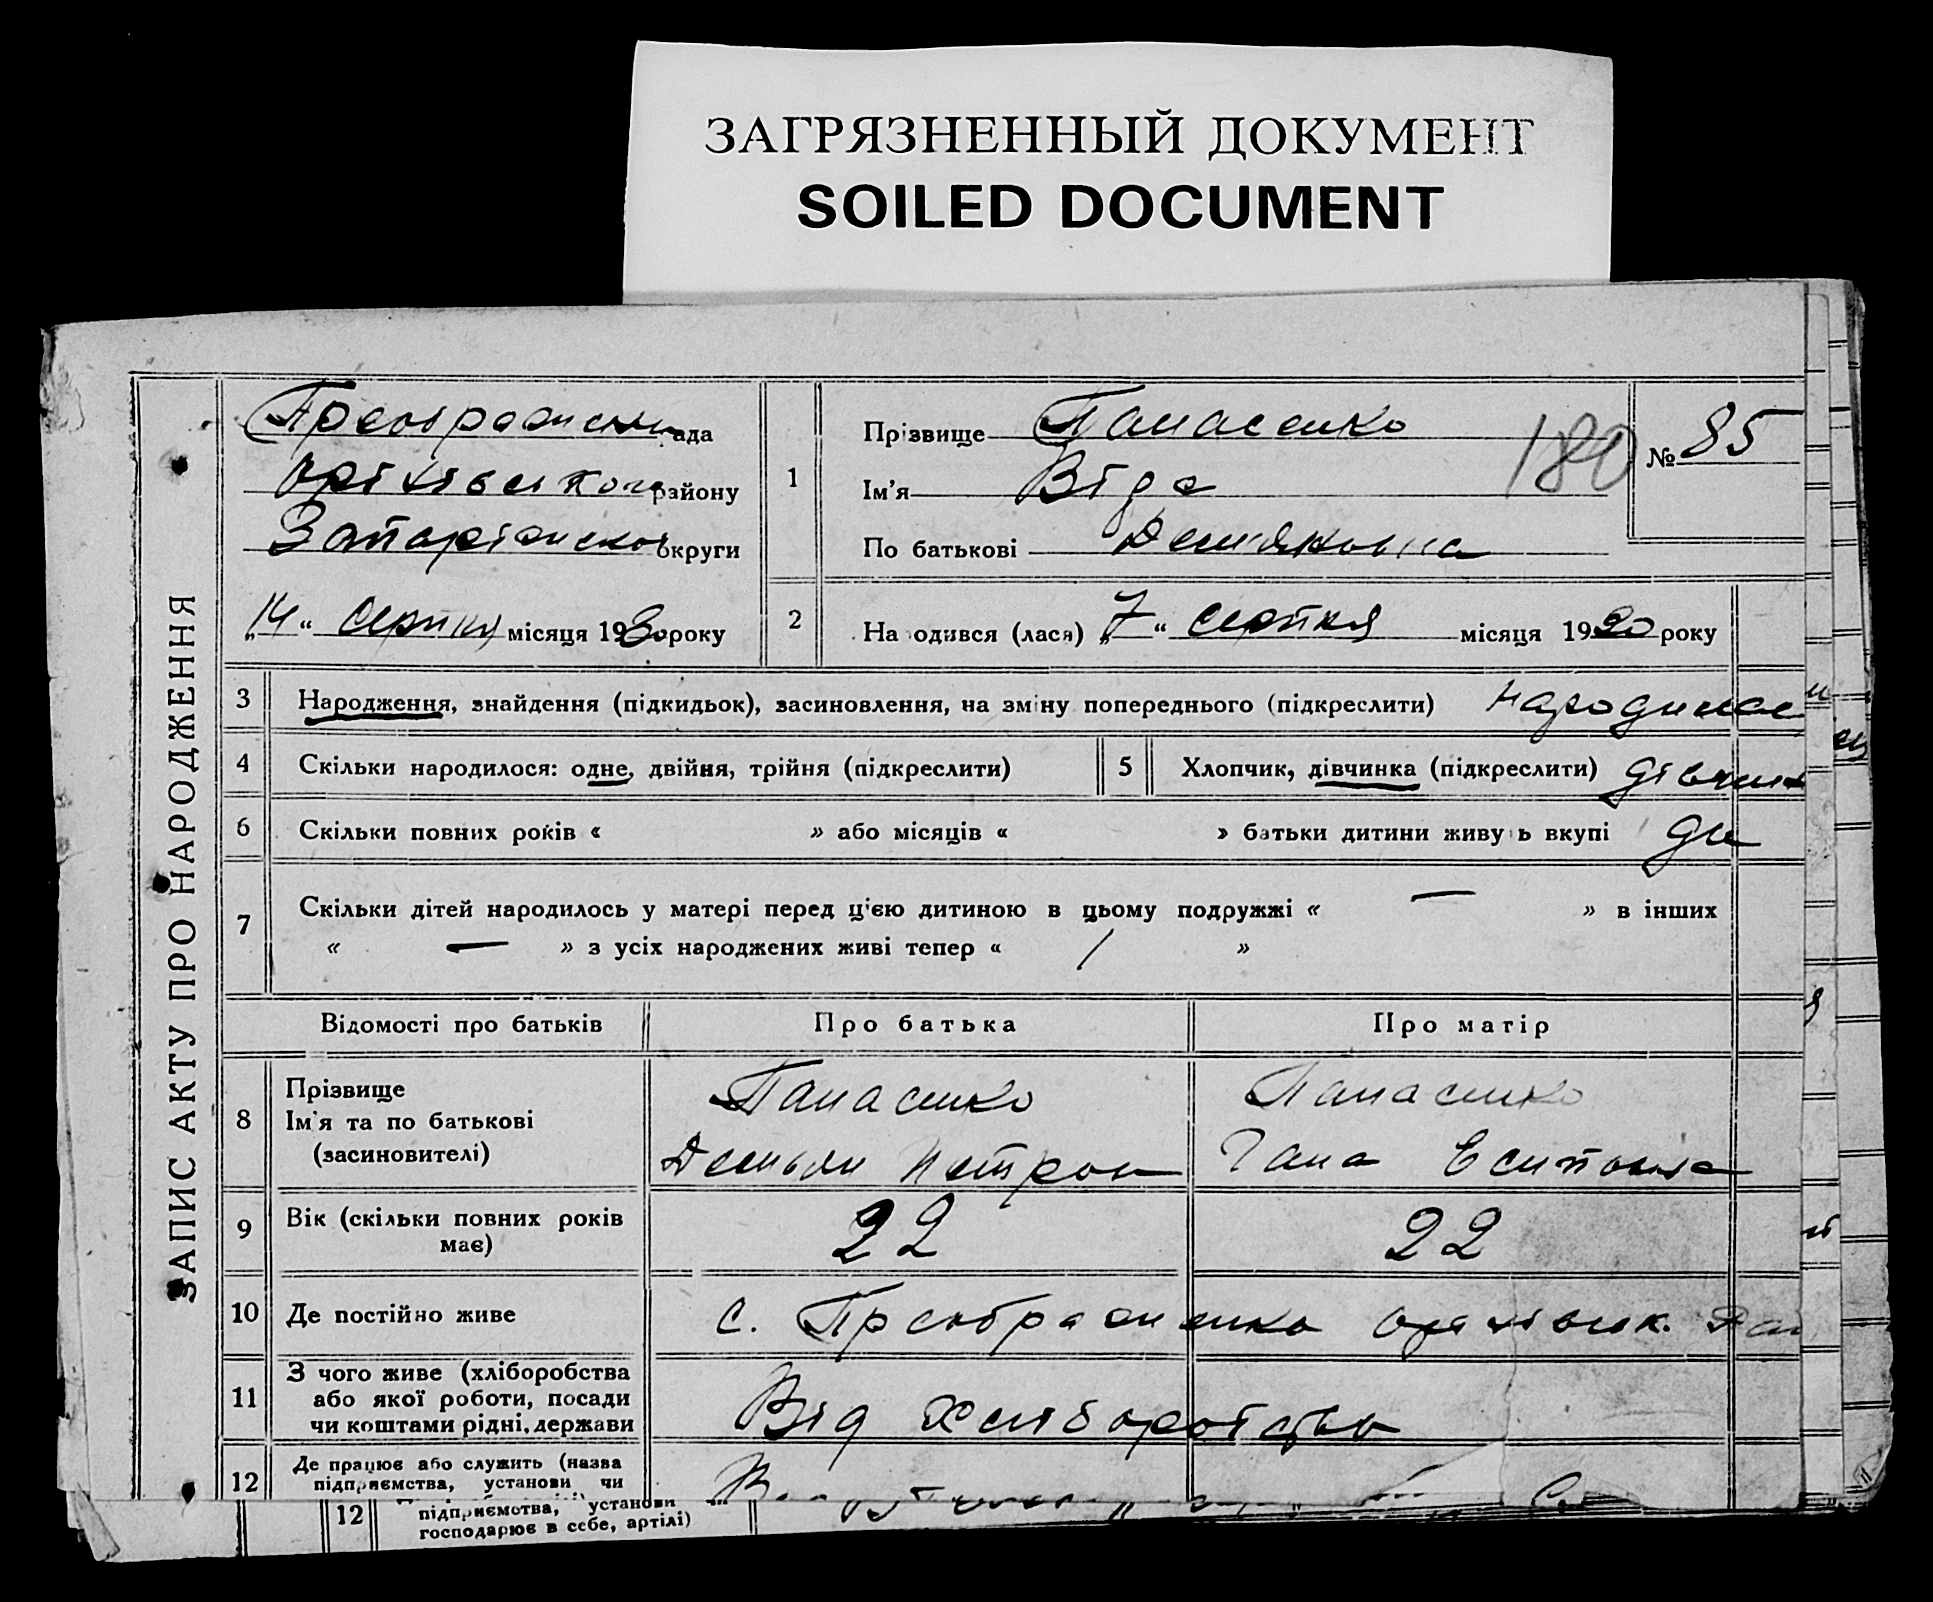 ЗАГРЯЗНЕННЫЙ ДОКУМЕНТ
SOILED DOCUMENT
ЗАПИС АКТУ ПРО НАРОДЖЕННЯ
рада
району
Запоріжської округи
„14“ серпня місяця 1930 року
1
Прізвище Панасенко
Ім'я Віра
По батькові Дем'яновна
180
№ 85
2 Народився (лася) „7“ серпня місяця 1930 року
3 Народження, знайдення (підкидьок), засиновлення, на зміну попереднього (підкреслити)
4 Скільки народилося: одне, двійня, трійня (підкреслити) 5 Хлопчик, дівчинка (підкреслити)
6 Скільки повних років « » або місяців « » батьки дитини живуть вкупі
7 Скільки дітей народилось у матері перед цією дитиною в цьому подружжі « — » в інших
« — » з усіх народжених живі тепер « / »
Відомості про батьків Про батька Про матір
8 Прізвище Панасенко Панасенко
Ім'я та по батькові
(засиновителі) Демьян Петров Гана
9 Вік (скільки повних років 22 22
має)
10 Де постійно живе с.
11 З чого живе (хліборобства
або якої роботи, посади Від
чи коштами рідні, держави
12 Де працює або служить (назва
підприємства, установи чи
12 підприємства, установи
господарює в себе, артілі)